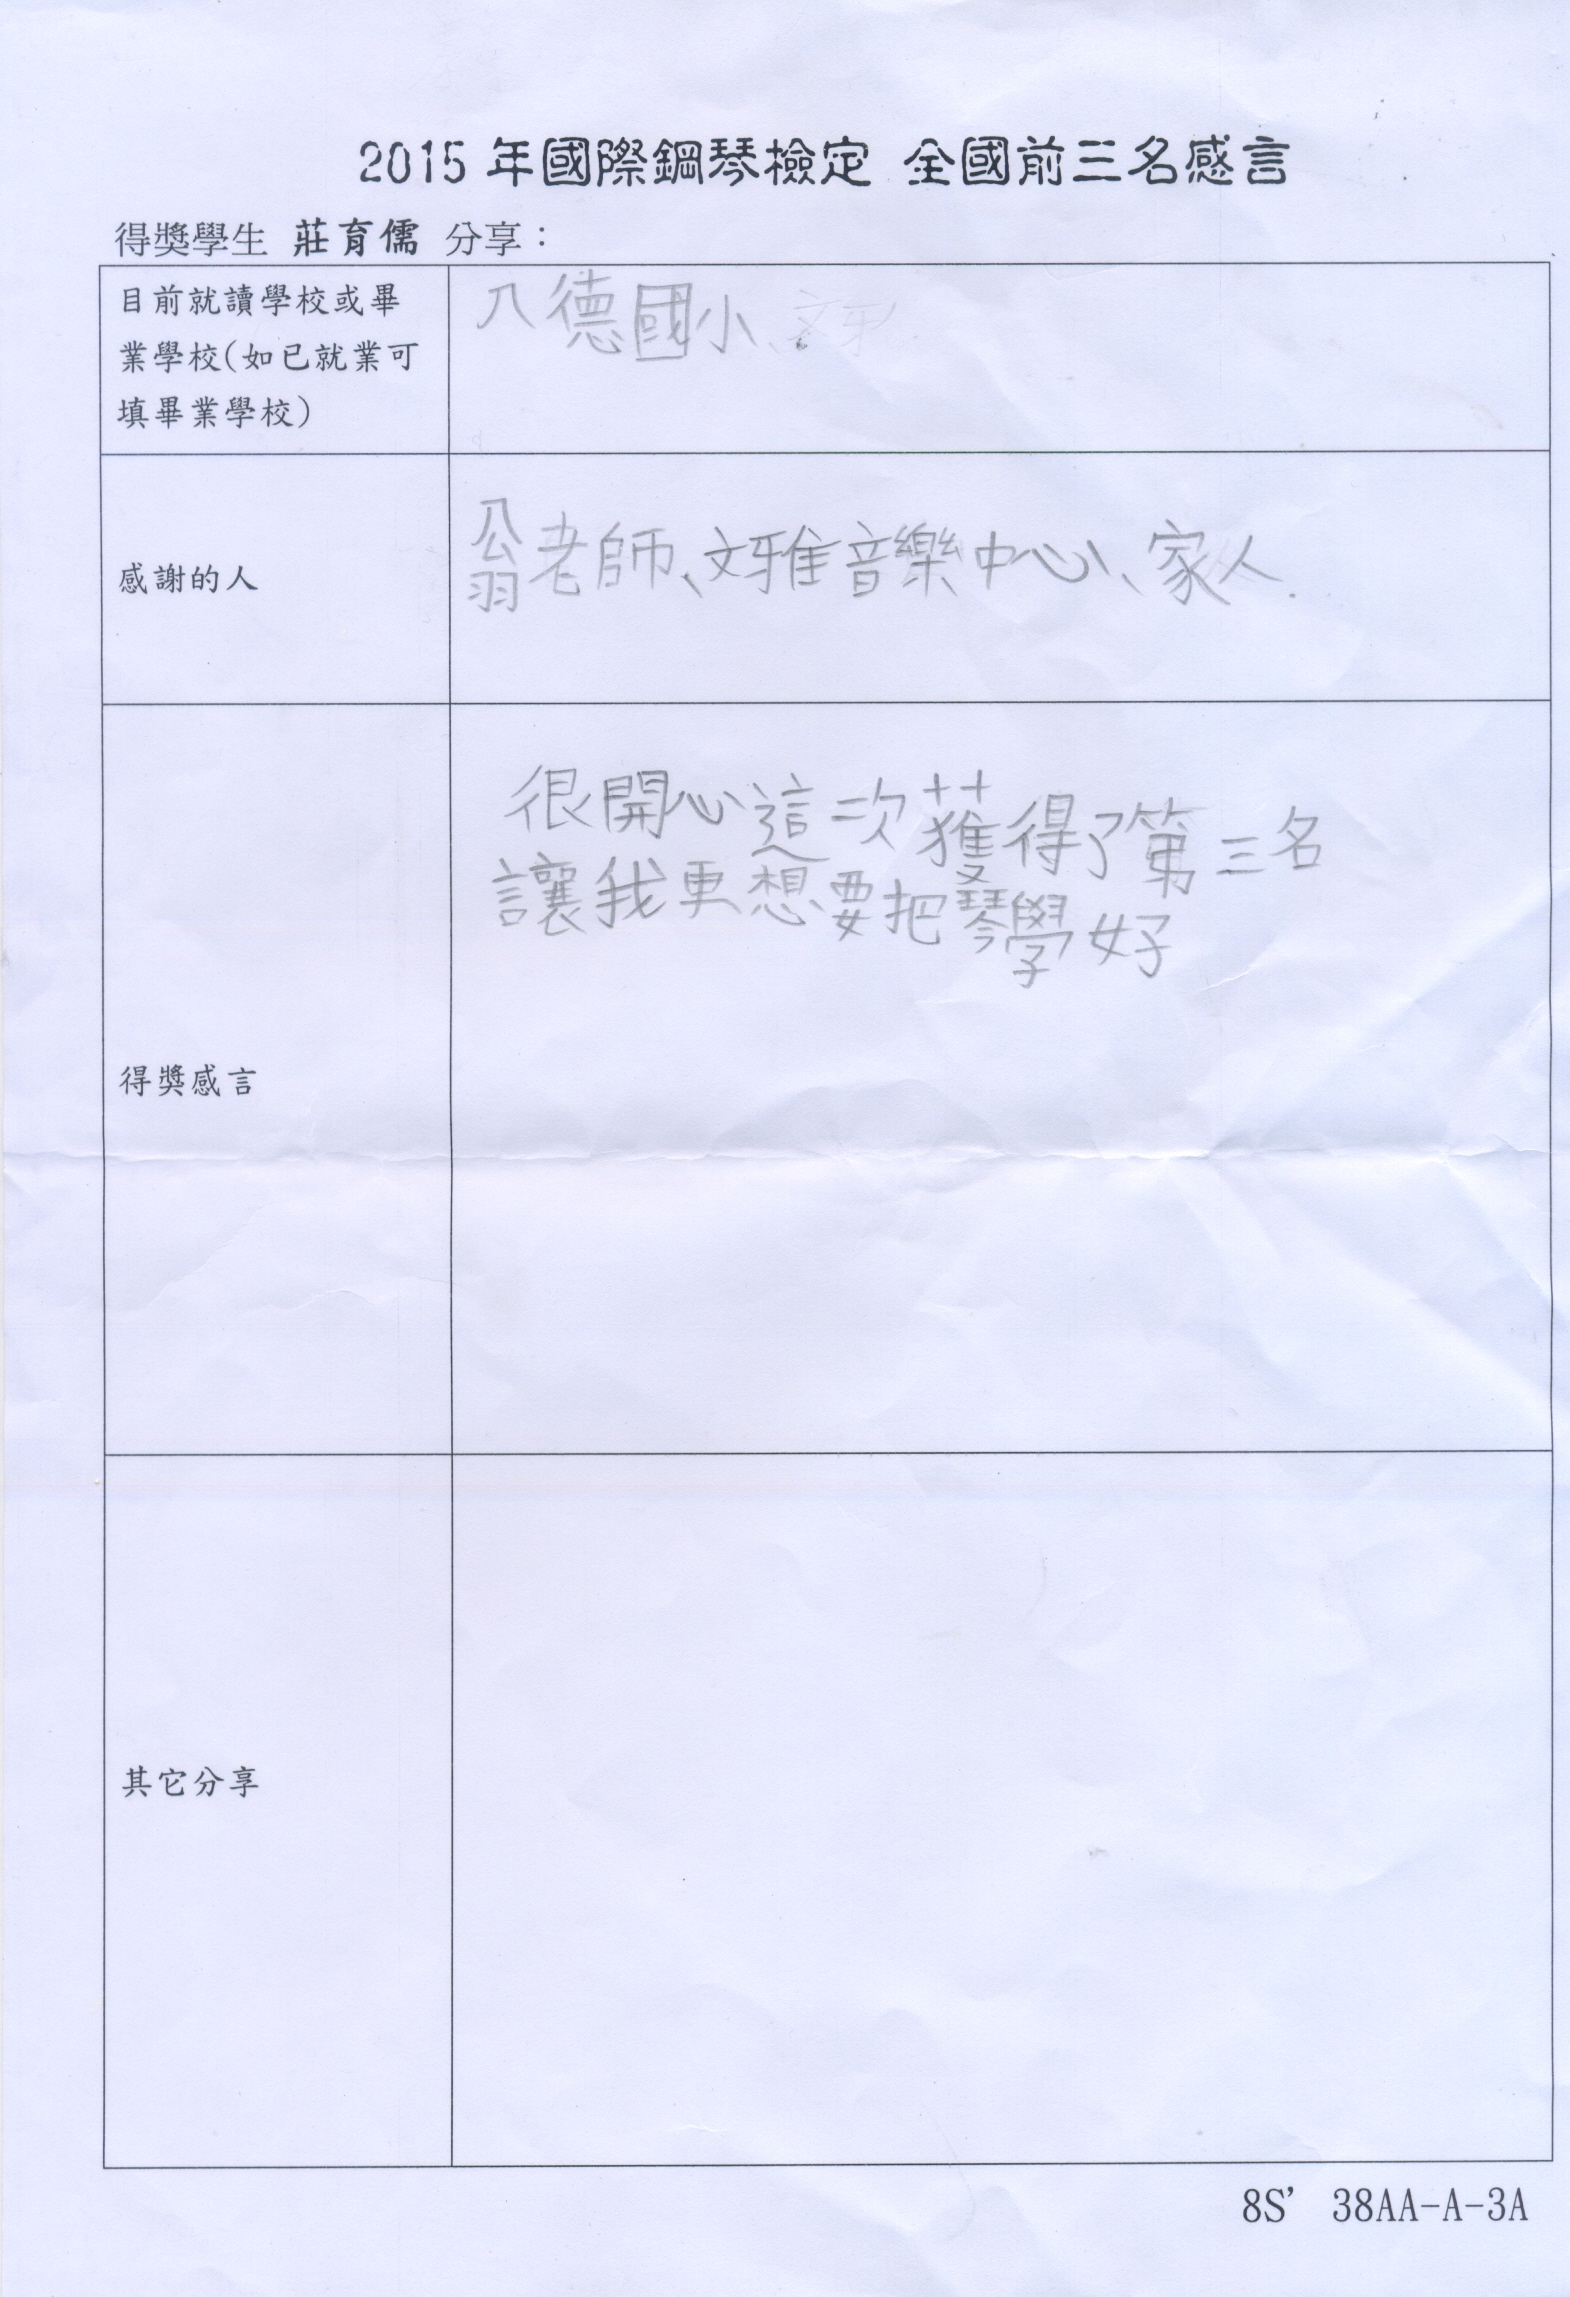 2015 年國際鋼琴檢定 全國前三名感言
得獎學生 莊育儒 分享：
目前就讀學校或畢
業學校(如已就業可
填畢業學校)
八德國小、
感謝的人
翁老師、文雅音樂中心、家人.
很開心這次獲得了第三名
讓我更想要把琴學好
得獎感言
其它分享
8S’ 38AA-A-3A